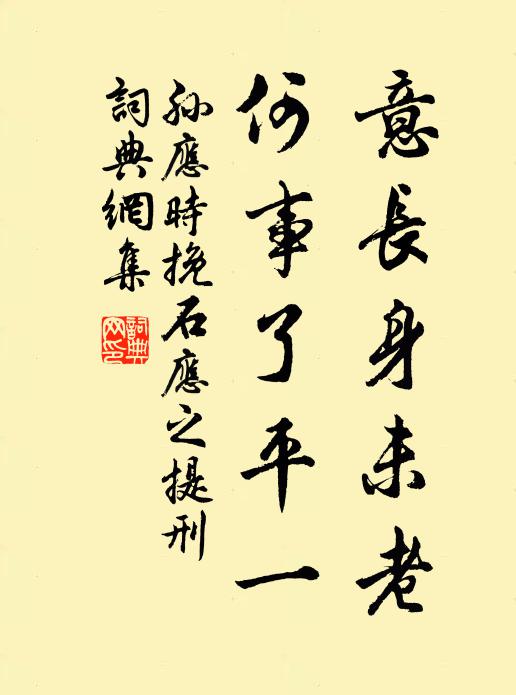 意長身未老
何事了平一
孫應時挽石應之提刑
詞典網集
詞典
网印